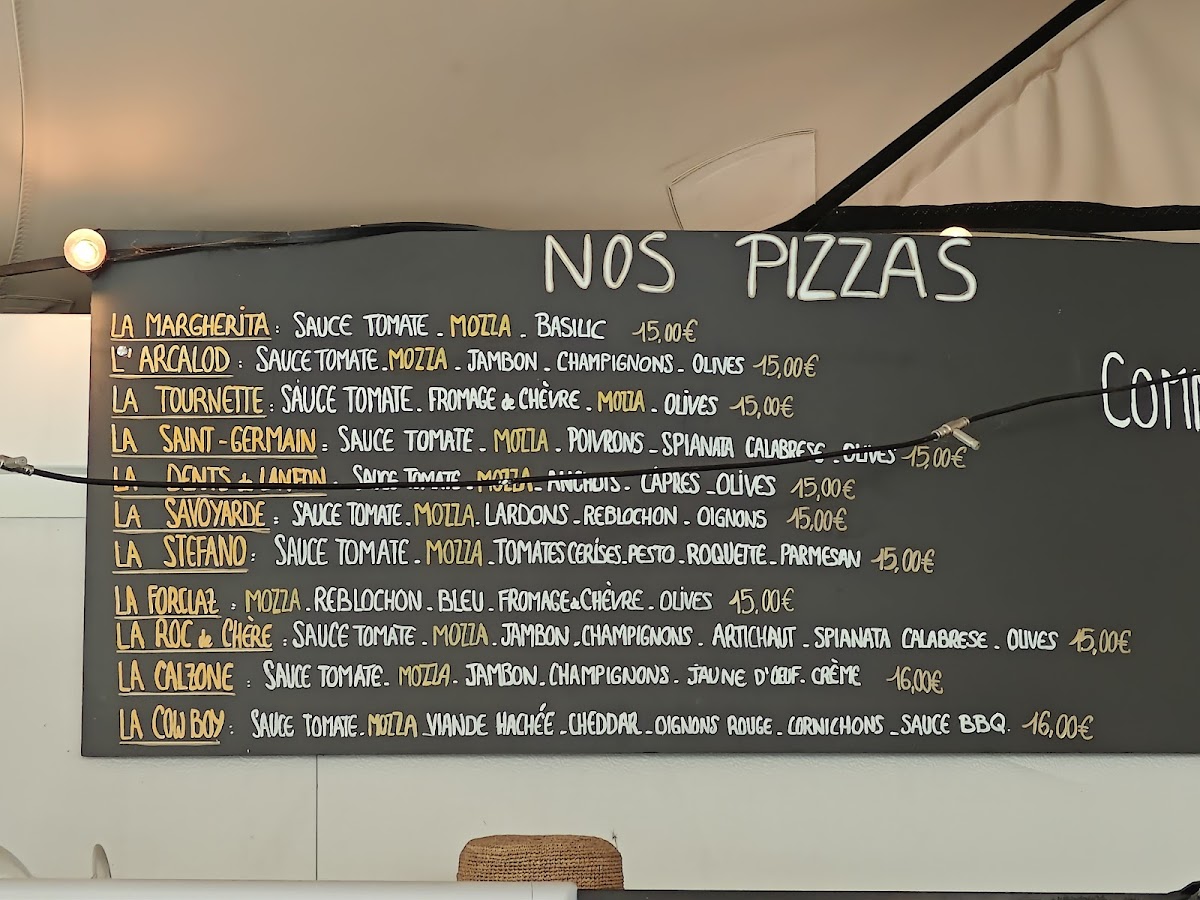 NOS PIZZAS
LA MARGHERITA : SAUCE TOMATE - MOZZA - BASILIC 15,00€
L'ARCALOD : SAUCE TOMATE - MOZZA - JAMBON - CHAMPIGNONS - OLIVES 15,00€
LA TOURNETTE : SAUCE TOMATE - FROMAGE de CHÈVRE - MOZZA - OLIVES 15,00€
LA SAINT-GERMAIN : SAUCE TOMATE - MOZZA - POIVRONS - SPIANATA CALABRESE - OLIVES 15,00€
LA DENTS de LANFON : SAUCE TOMATE - MOZZA - ANCHOIS - CÂPRES - OLIVES 15,00€
LA SAVOYARDE : SAUCE TOMATE - MOZZA - LARDONS - REBLOCHON - OIGNONS 15,00€
LA STEFANO : SAUCE TOMATE - MOZZA - TOMATES CERISES - PESTO - ROQUETTE - PARMESAN 15,00€
LA FORCLAZ : MOZZA - REBLOCHON - BLEU - FROMAGE de CHÈVRE - OLIVES 15,00€
LA ROC de CHÈRE : SAUCE TOMATE - MOZZA - JAMBON - CHAMPIGNONS - ARTICHAUT - SPIANATA CALABRESE - OLIVES 15,00€
LA CALZONE : SAUCE TOMATE - MOZZA - JAMBON - CHAMPIGNONS - JAUNE D'ŒUF - CRÈME 16,00€
LA COWBOY : SAUCE TOMATE - MOZZA - VIANDE HACHÉE - CHEDDAR - OIGNONS ROUGE - CORNICHONS - SAUCE BBQ 16,00€